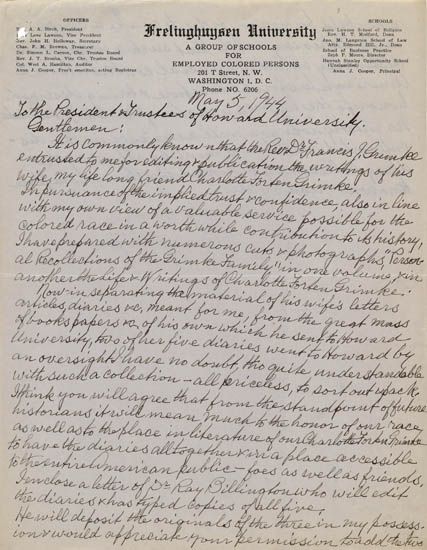 OFFICERS
A. A. Birch, President
Love Lawson, Vice President
John H. Holloway, Secretary
Chas. F. M. Browne, Treasurer
Dr. Simeon L. Carson, Chr. Trustee Board
Rev. J. T. Brooks, Vice Chr. Trustee Board
Col. West A. Hamilton, Auditor
Anna J. Cooper, Pres't emeritus, acting Registrar
Frelinghuysen University
A GROUP OF SCHOOLS
FOR
EMPLOYED COLORED PERSONS
201 T Street, N. W.
WASHINGTON 1, D. C.
Phone NO. 6206
SCHOOLS
Jesse Lawson School of Religion
Rev. H. T. Medford, Dean
Jno. M. Langston School of Law
Atty. Edmond Hill, Jr., Dean
School of Embalming
Hannah Stanley Opportunity School
(Unclassified)
Anna J. Cooper, Principal
May 5, 1944
To the President & Trustees of Howard University.
Gentlemen:
It is commonly known that the Rev. Dr. Francis J. Grimke
entrusted to me for editing & publication the writings of his
wife, my life long friend Charlotte Forten Grimke.
In pursuance of the implied trust & confidence, also in line
with my own view of a valuable service possible for the
colored race in a worth while contribution to its history,
I have prepared with numerous cuts & photographs "Person-
al Recollections of the Grimke Family" in one volume, & in
another the Life & Writings of Charlotte Forten Grimke.
Now in separating the material of his wife's letters
articles, diaries &c, meant for me, from the great mass
of books papers &c of his own which he sent to Howard
University, two of her five diaries went to Howard by
an oversight I have no doubt, tho quite understandable
with such a collection—all priceless, to sort out & pack.
I think you will agree that from the standpoint of future
historians it will mean much to the honor of our race,
as well as to the place in literature of our Charlotte Forten Grimke
to have the diaries all together & in a place accessible
to the entire American public—foes as well as friends.
I enclose a letter of Dr Ray Billington who will edit
the diaries & has typed copies of all five.
He will deposit the originals of the three in my posses-
sion & would appreciate your permission to add the two